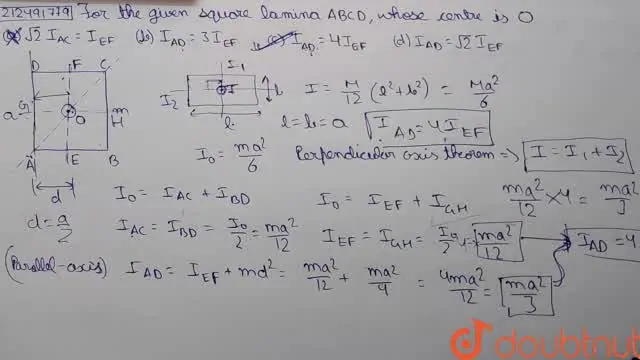 212491779 For the given square lamina ABCD, whose centre is O
(a) √2 I_AC = I_EF (b) I_AD = 3 I_EF (c) I_AD = 4 I_EF (d) I_AD = √2 I_EF
D F C
a G O m H
A E B
d
I_1
I_2 I b
l
I = M/12 (l² + b²) = Ma²/6
l = b = a I_AD = 4 I_EF
I_0 = ma²/6 Perpendicular axis theorem => I = I_1 + I_2
I_0 = I_AC + I_BD I_0 = I_EF + I_GH ma²/12 × 4 = ma²/3
d = a/2 I_AC = I_BD = I_0/2 = ma²/12 I_EF = I_GH = I_0/2 = ma²/12 I_AD = 4
(Parallel-axis) I_AD = I_EF + md² = ma²/12 + ma²/4 = 4ma²/12 = ma²/3
doubtnut